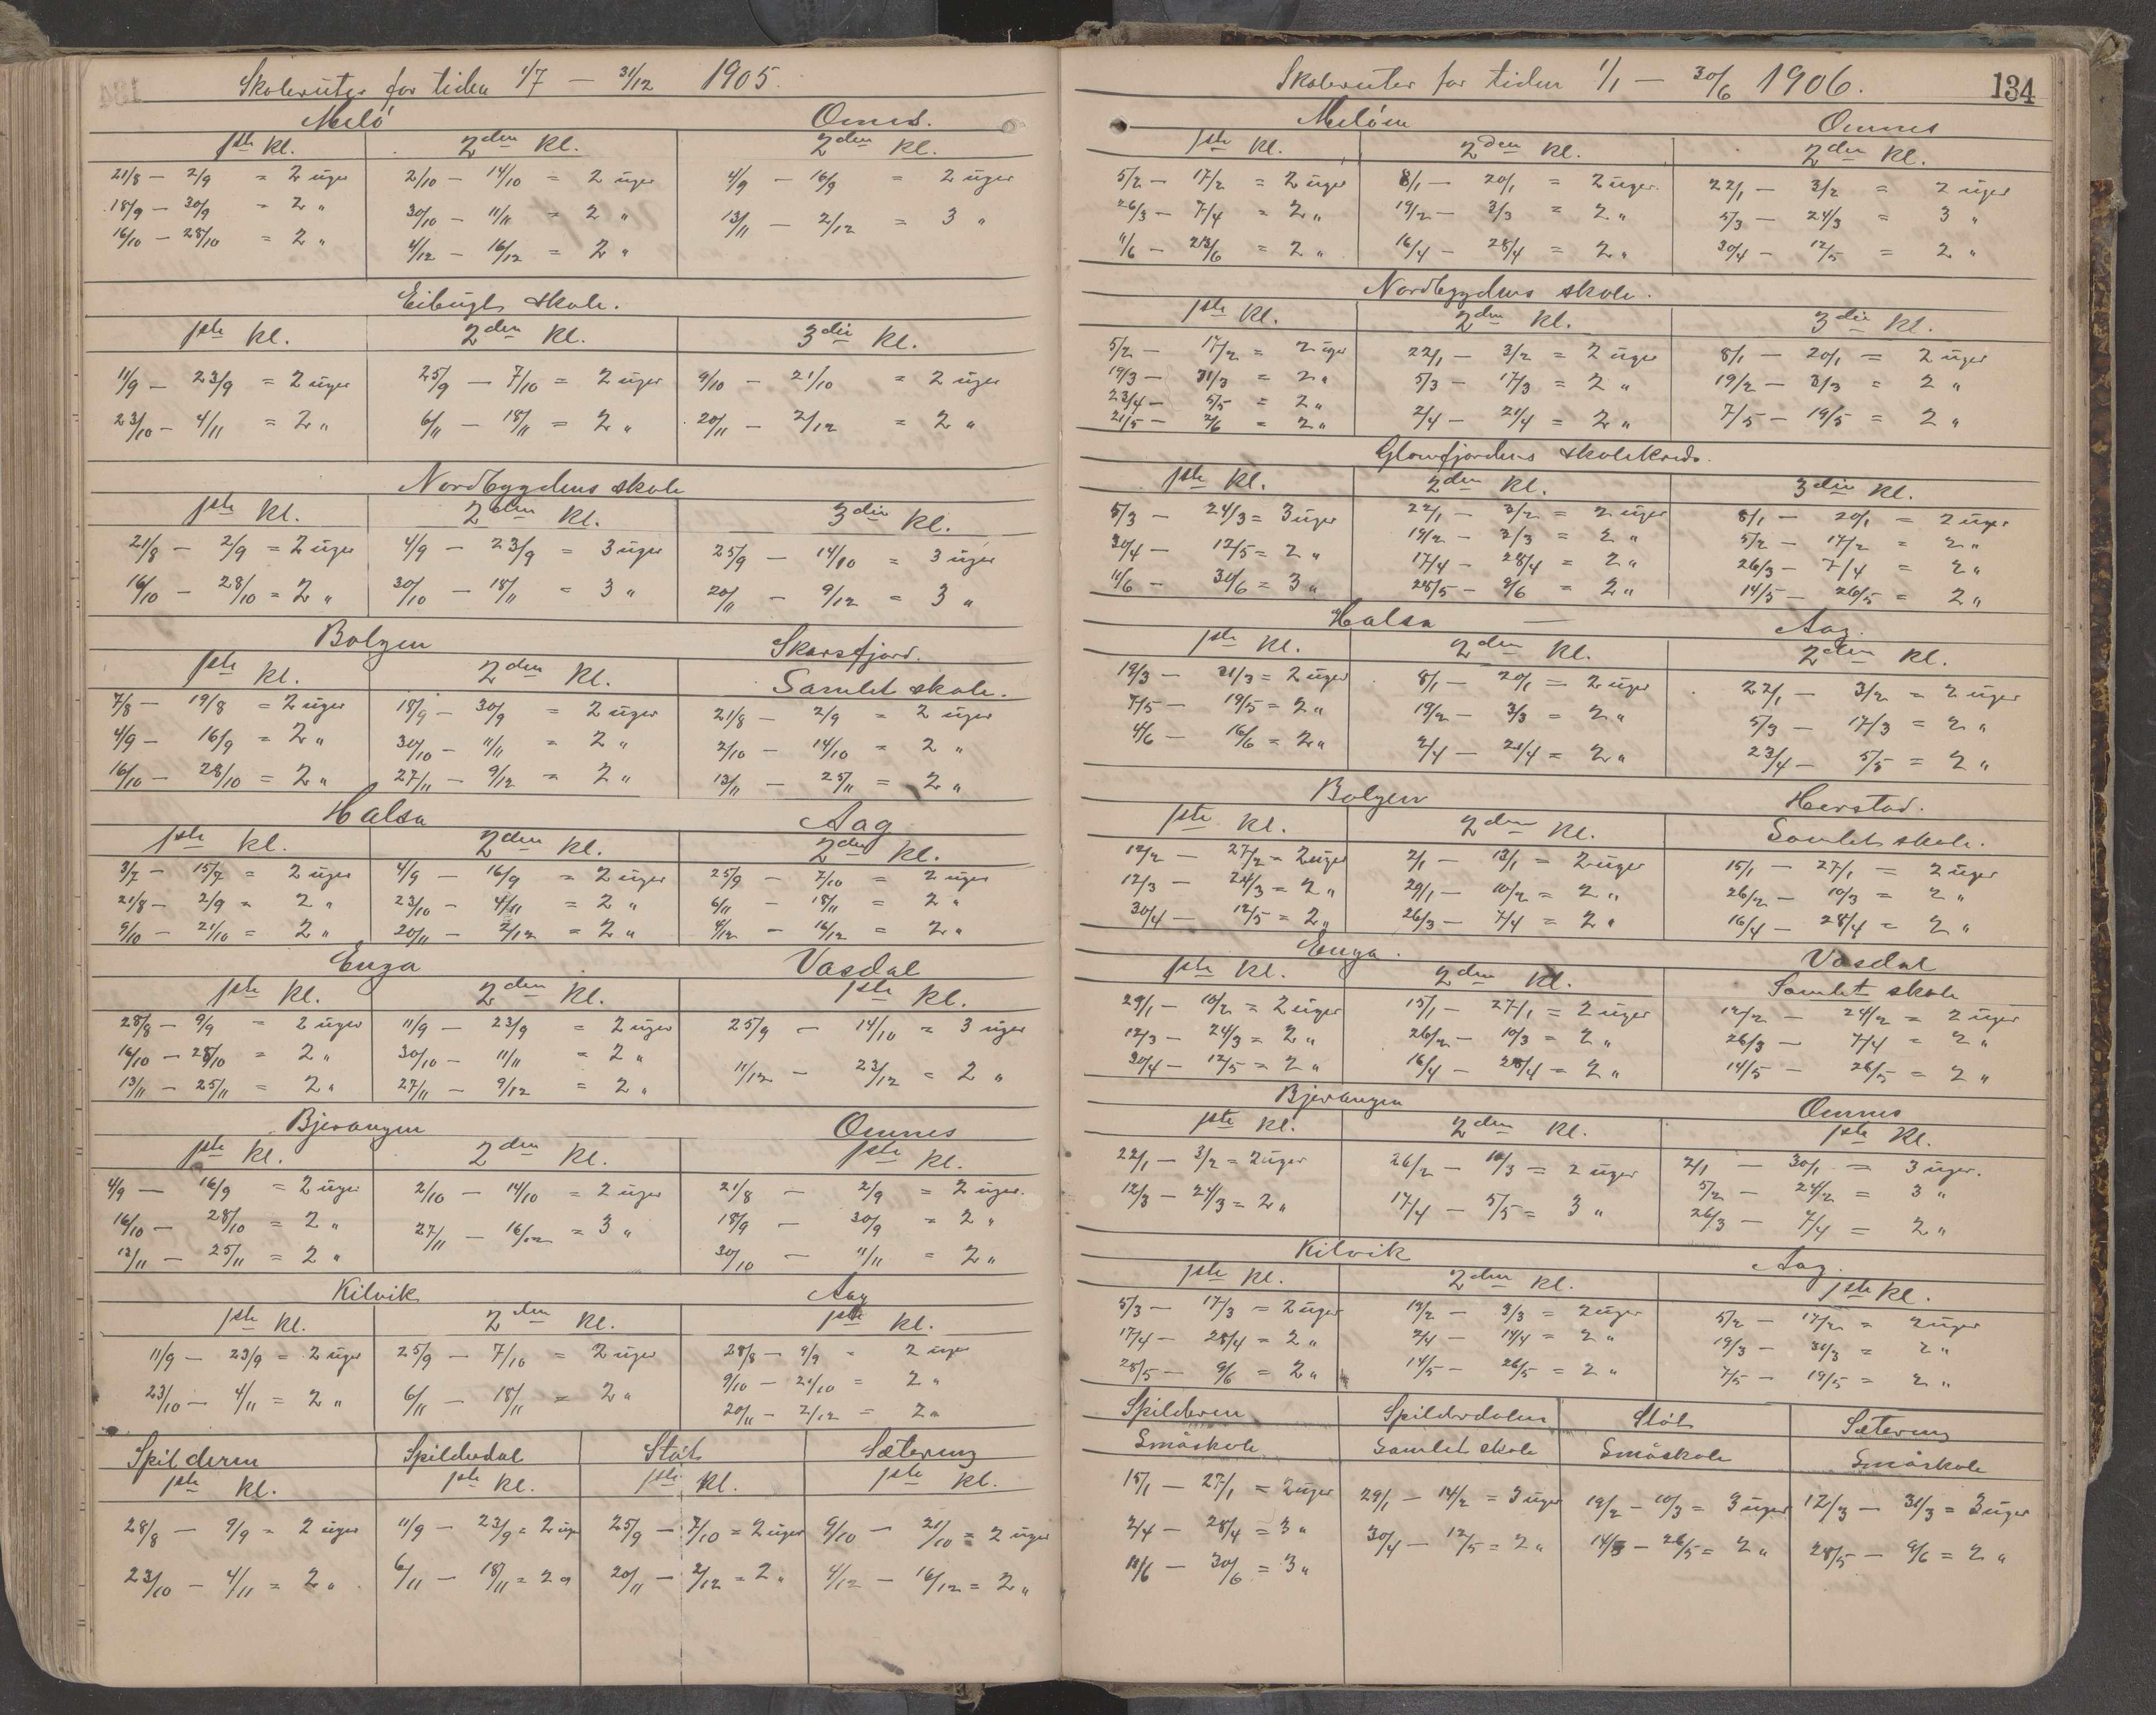 Skoleruter for tiden 1/7 — 31/12 1905.
Melö Ornes.
1ste Kl. 2den Kl. 2den Kl.
21/8 — 2/9 = 2 uger 2/10 — 14/10 = 2 uger 4/9 — 16/9 = 2 uger
18/9 — 30/9 = 2 " 30/10 — 11/11 = 2 " 13/11 — 2/12 = 3 "
16/10 — 28/10 = 2 " 4/12 — 16/12 = 2 "
skole.
1ste Kl. 2den Kl. 3die Kl.
11/9 — 23/9 = 2 uger 25/9 — 7/10 = 2 uger 9/10 — 21/10 = 2 uger
23/10 — 4/11 = 2 " 6/11 — 18/11 = 2 " 20/11 — 2/12 = 2 "
Nordbygdens skole
1ste Kl. 2den Kl. 3die Kl.
21/8 — 2/9 = 2 uger 4/9 — 23/9 = 3 uger 25/9 — 14/10 = 3 uger
16/10 — 28/10 = 2 " 30/10 — 18/11 = 3 " 20/11 — 9/12 = 3 "
Bolgen Skarsfjord.
1ste Kl. 2den Kl. Samlet skole.
7/8 — 19/8 = 2 uger 18/9 — 30/9 = 2 uger 21/8 — 2/9 = 2 uger
4/9 — 16/9 = 2 " 30/10 — 11/11 = 2 " 2/10 — 14/10 = 2 "
16/10 — 28/10 = 2 " 27/11 — 9/12 = 2 " 13/11 — 25/11 = 2 "
Halsa Aag
1ste Kl. 2den Kl. 2den Kl.
3/7 — 15/7 = 2 uger 4/9 — 16/9 = 2 uger 25/9 — 7/10 = 2 uger
21/8 — 2/9 = 2 " 23/10 — 4/11 = 2 " 6/11 — 18/11 = 2 "
9/10 — 21/10 = 2 " 20/11 — 2/12 = 2 " 4/12 — 16/12 = 2 "
Enga Vasdal
1ste Kl. 2den Kl. 1ste Kl.
28/8 — 9/9 = 2 uger 11/9 — 23/9 = 2 uger 25/9 — 14/10 = 3 uger
16/10 — 28/10 = 2 " 30/10 — 11/11 = 2 " 11/12 — 23/12 = 2 "
13/11 — 25/11 = 2 " 27/11 — 9/12 = 2 "
Bjerangen Ornnes
1ste Kl. 2den Kl. 1ste Kl.
4/9 — 16/9 = 2 uger 2/10 — 14/10 = 2 uger 21/8 — 2/9 = 2 uger.
16/10 — 28/10 = 2 " 27/11 — 16/12 = 3 " 18/9 — 30/9 = 2 "
13/11 — 25/11 = 2 " 30/10 — 11/11 = 2 "
Kilvik Aag
1ste Kl. 2den Kl. 1ste Kl.
11/9 — 23/9 = 2 uger 25/9 — 7/10 = 2 uger 28/8 — 9/9 = 2 uger
23/10 — 4/11 = 2 " 6/11 — 18/11 = 2 " 9/10 — 21/10 = 2 "
20/11 — 2/12 = 2 "
Spilderen Spilderdal Stöt Sætering
1ste Kl. 1ste Kl. 1ste Kl. 1ste Kl.
28/8 — 9/9 = 2 uger 11/9 — 23/9 = 2 uger 25/9 — 7/10 = 2 uger 9/10 — 21/10 = 2 uger
23/10 — 4/11 = 2 " 6/11 — 18/11 = 2 " 20/11 — 2/12 = 2 " 4/12 — 16/12 = 2 "
Skoleruter for tiden 1/1 — 30/6 1906. 134
Melöen Ornnes
1ste Kl. 2den Kl. 2den Kl.
5/2 — 17/2 = 2 uger 8/1 — 20/1 = 2 uger. 22/1 — 3/2 = 2 uger
26/3 — 7/4 = 2 " 19/2 — 3/3 = 2 " 5/3 — 24/3 = 3 "
11/6 — 23/6 = 2 " 16/4 — 28/4 = 2 " 30/4 — 12/5 = 2 "
Nordbygdens skole.
1ste Kl. 2den Kl. 3die Kl.
5/2 — 17/2 = 2 uger 22/1 — 3/2 = 2 uger 8/1 — 20/1 = 2 uger
19/3 — 31/3 = 2 " 5/3 — 17/3 = 2 " 19/2 — 3/3 = 2 "
23/4 — 5/5 = 2 " 2/4 — 21/4 = 2 " 7/5 — 19/5 = 2 "
21/5 — 2/6 = 2 "
Glomfjordens skolekreds.
1ste Kl. 2den Kl. 3die Kl.
5/3 — 24/3 = 3 uger 22/1 — 3/2 = 2 uger 8/1 — 20/1 = 2 uger
30/4 — 12/5 = 2 " 19/2 — 3/3 = 2 " 5/2 — 17/2 = 2 "
11/6 — 30/6 = 3 " 17/4 — 28/4 = 2 " 26/3 — 7/4 = 2 "
28/5 — 9/6 = 2 " 14/5 — 26/5 = 2 "
Halsa — Aag.
1ste Kl. 2den Kl. 2den Kl.
19/3 — 31/3 = 2 uger 8/1 — 20/1 = 2 uger 22/1 — 3/2 = 2 uger
7/5 — 19/5 = 2 " 19/2 — 3/3 = 2 " 5/3 — 17/3 = 2 "
4/6 — 16/6 = 2 " 2/4 — 21/4 = 2 " 23/4 — 5/5 = 2 "
Bolgen Herstad.
1ste Kl. 2den Kl. Samlet skole.
12/2 — 27/2 = 2 uger 2/1 — 13/1 = 2 uger 15/1 — 27/1 = 2 uger
12/3 — 24/3 = 2 " 29/1 — 10/2 = 2 " 26/2 — 10/3 = 2 "
30/4 — 12/5 = 2 " 26/3 — 7/4 = 2 " 16/4 — 28/4 = 2 "
Enga. Vasdal
1ste Kl. 2den Kl. Samlet skole
29/1 — 10/2 = 2 uger 15/1 — 27/1 = 2 uger 12/2 — 24/2 = 2 uger
12/3 — 24/3 = 2 " 26/2 — 10/3 = 2 " 26/3 — 7/4 = 2 "
30/4 — 12/5 = 2 " 16/4 — 28/4 = 2 " 14/5 — 26/5 = 2 "
Bjerangen Ornnes
1ste Kl. 2den Kl. 1ste Kl.
22/1 — 3/2 = 2 uger 26/2 — 10/3 = 2 uger 2/1 — 30/1 = 3 uger.
12/3 — 24/3 = 2 " 17/4 — 5/5 = 3 " 5/2 — 24/2 = 3 "
26/3 — 7/4 = 2 "
Kilvik Aag.
1ste Kl. 2den Kl. 1ste Kl.
5/3 — 17/3 = 2 uger 19/2 — 3/3 = 2 uger 5/2 — 17/2 = 2 uger
17/4 — 28/4 = 2 " 2/4 — 14/4 = 2 " 19/3 — 31/3 = 2 "
28/5 — 9/6 = 2 " 14/5 — 26/5 = 2 " 7/5 — 19/5 = 2 "
Spilderen Spilderdalen Stöt Sætering
Småskole Samlet skole Småskole Småskole
15/1 — 27/1 = 2 uger 29/1 — 14/2 = 3 uger 19/2 — 10/3 = 3 uger 12/3 — 31/3 = 3 uger
2/4 — 28/4 = 3 " 30/4 — 12/5 = 2 " 14/5 — 26/5 = 2 " 28/5 — 9/6 = 2 "
11/6 — 30/6 = 3 "